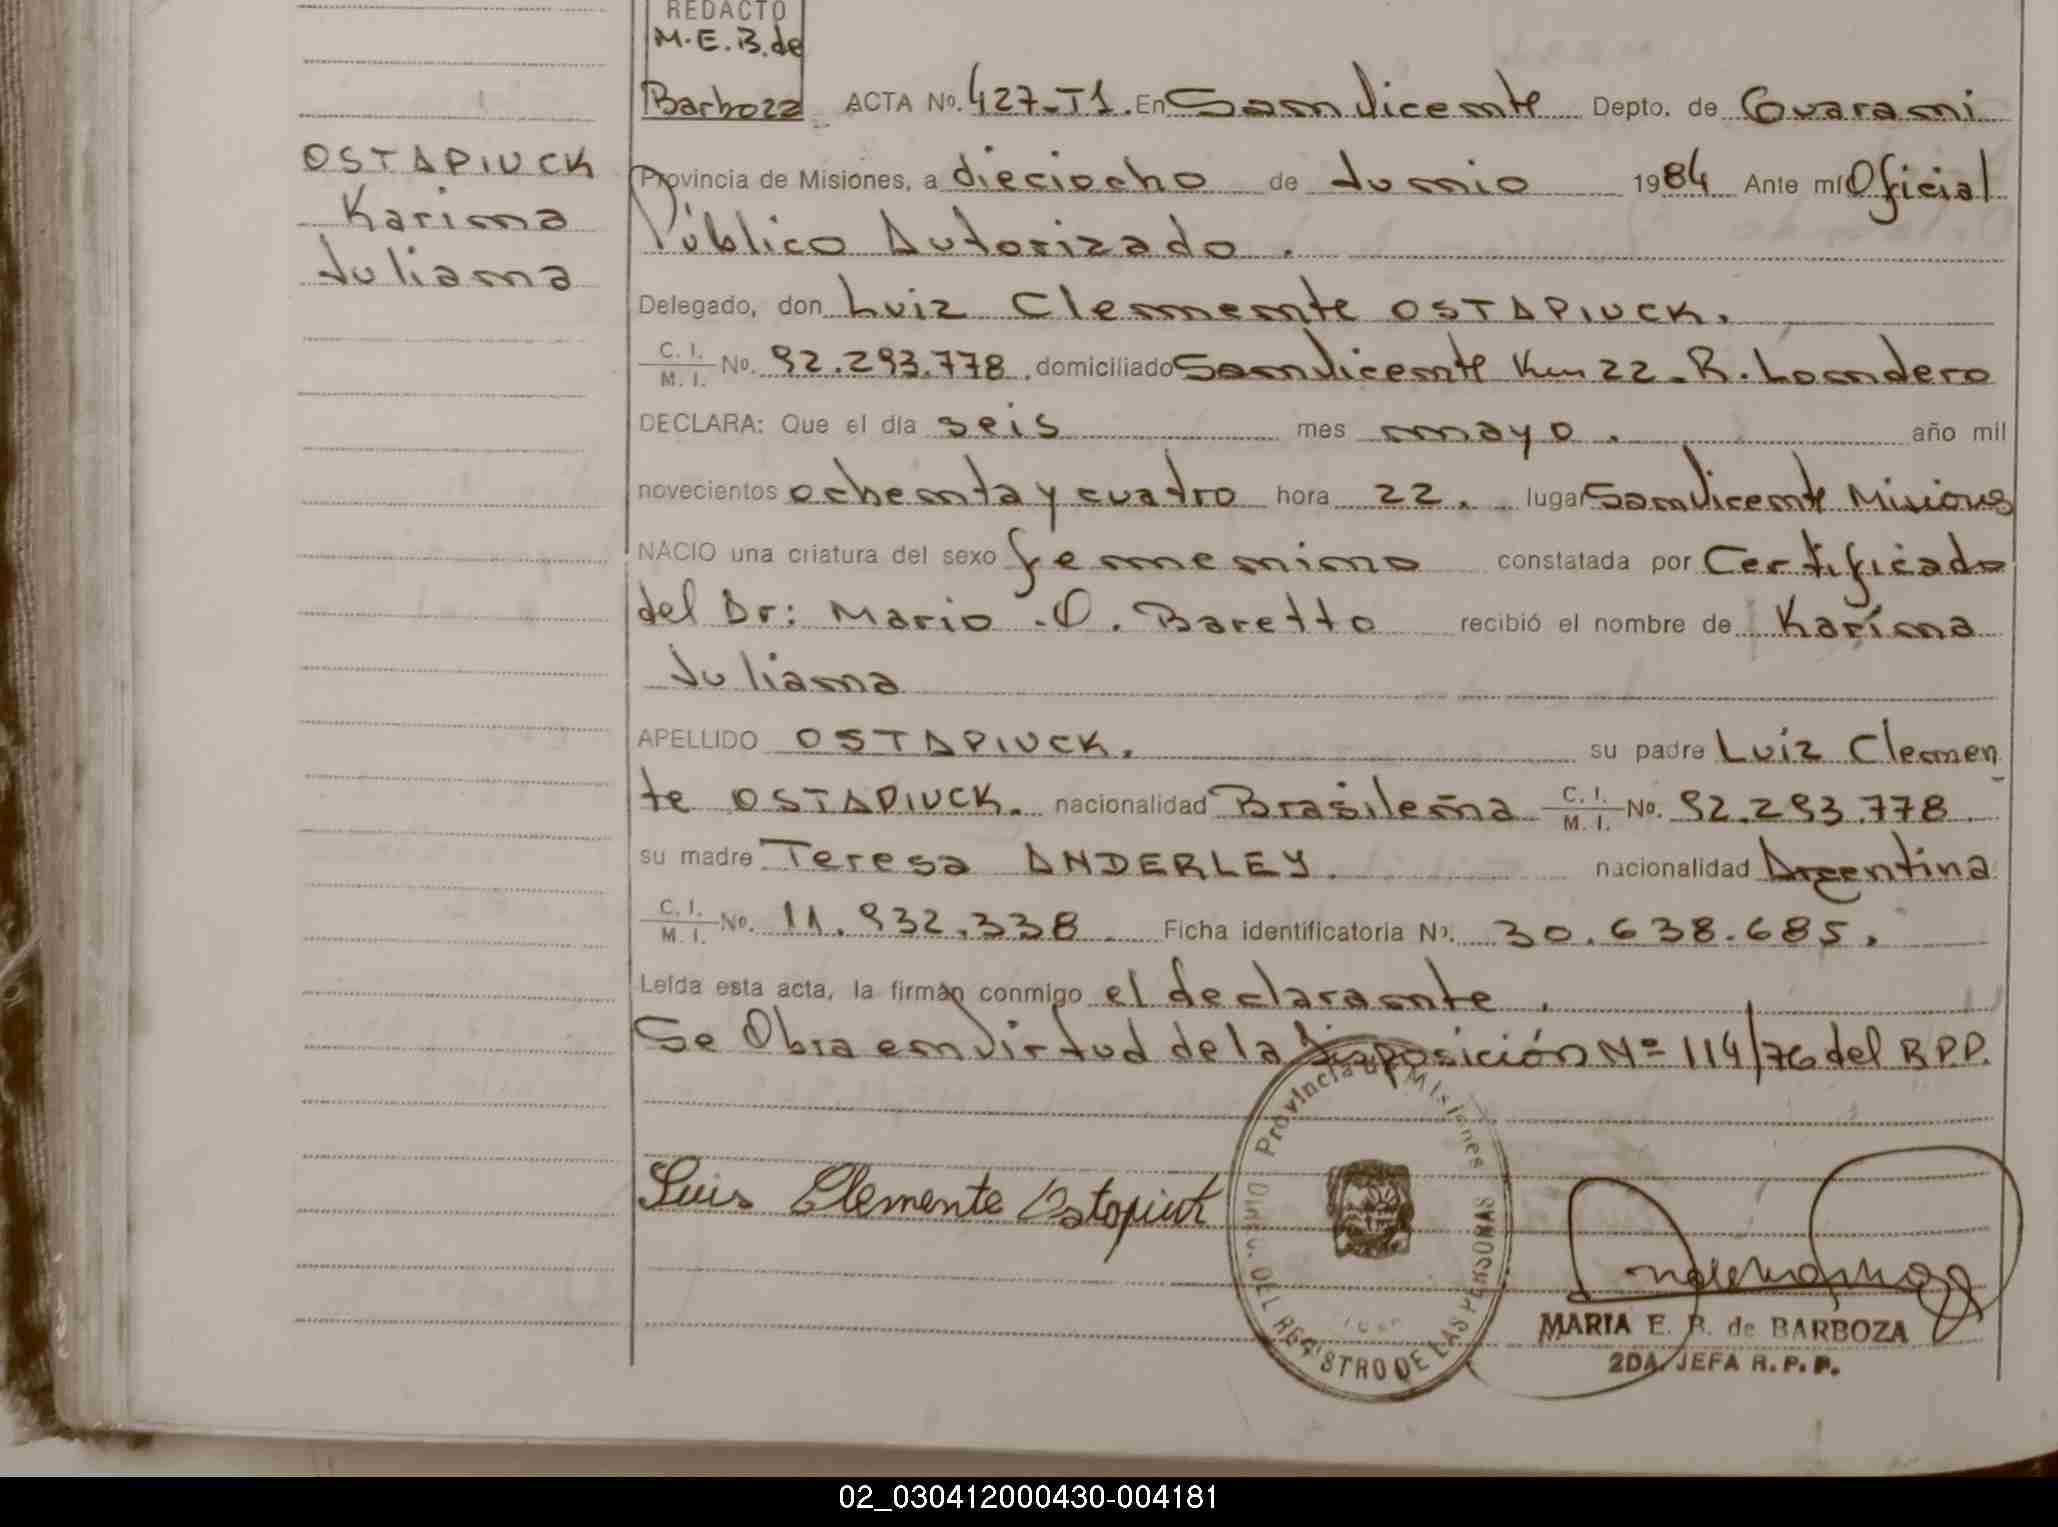 REDACTO
M.E.B. de
Barboza
ACTA No. 427-T1. En San Vicente Depto. de Guarani
OSTAPIUCK
Karina
Juliana
Provincia de Misiones, a dieciocho de Junio 1984 Ante mí Oficial
Público Autorizado.
Delegado, don Luiz Clemente OSTAPIUCK.
C. I.
M. I. No. 92.293.778. domiciliado San Vicente Km 22. R. Londero
DECLARA: Que el día seis mes mayo. año mil
novecientos ochenta y cuatro hora 22. lugar San Vicente Misiones
NACIO una criatura del sexo femenino constatada por Certificado
del Dr: Mario O. Baretto recibió el nombre de Karina
Juliana
APELLIDO OSTAPIUCK. su padre Luiz Clemen
te OSTAPIUCK. nacionalidad Brasileña C. I. M. I. No. 92.293.778.
su madre Teresa ANDERLEY. nacionalidad Argentina
C. I.
M. I. No. 11.932.338 Ficha identificatoria No. 30.638.685.
Leída esta acta, la firman conmigo el declarante.
Se Obra en virtud de la disposición Nº 114/76 del R.P.P.
Provincia de Misiones
Luis Clemente Ostapiuk
DIREC. DEL REGISTRO DE LAS PERSONAS
MARIA E. B. de BARBOZA
2DA. JEFA R. P. P.
02_030412000430-004181